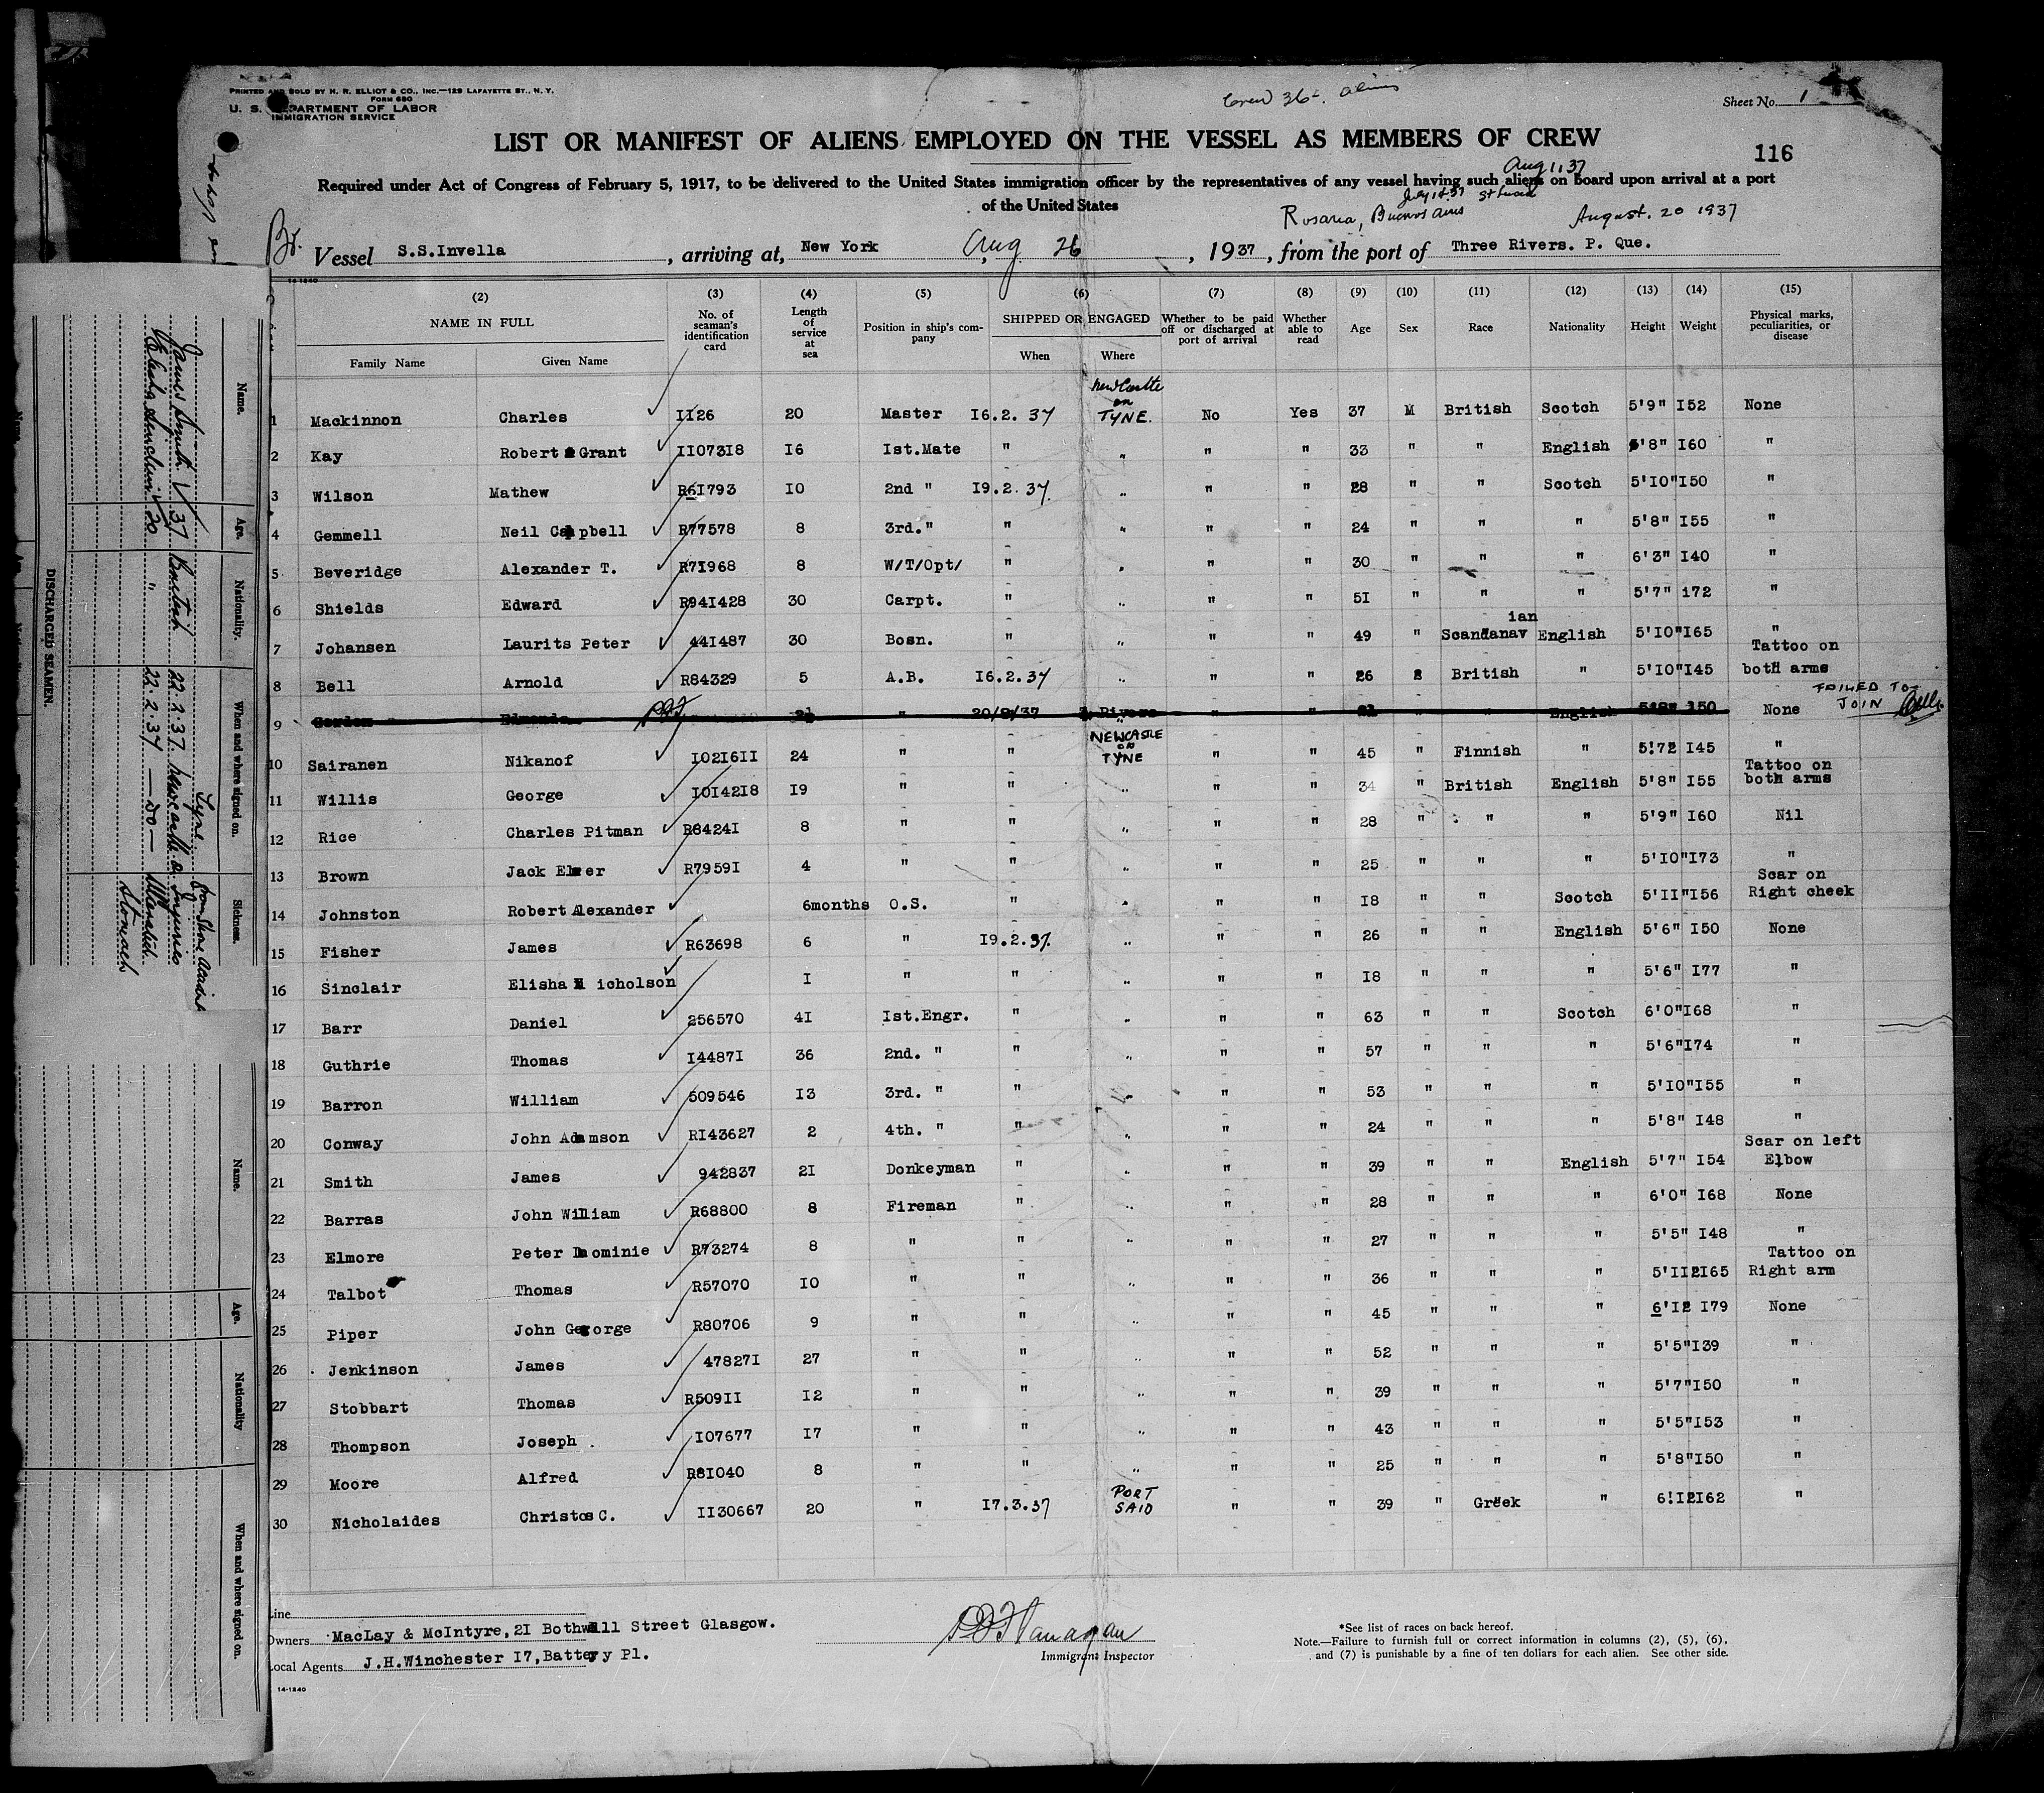 PRINTED AND SOLD BY H. R. ELLIOT & CO., INC.—129 LAFAYETTE ST., N. Y.
FORM 680
U. S. DEPARTMENT OF LABOR
IMMIGRATION SERVICE
Crew 36 aliens
Sheet No. 1
LIST OR MANIFEST OF ALIENS EMPLOYED ON THE VESSEL AS MEMBERS OF CREW
116
Aug 1, 37
Required under Act of Congress of February 5, 1917, to be delivered to the United States immigration officer by the representatives of any vessel having such aliens on board upon arrival at a port
of the United States
Rosaria, Buenos Aires August. 20 1937
Br. Vessel S.S.Invella, arriving at, New York Aug 26, 1937, from the port of Three Rivers. P. Que.
(2) (3) (4) (5) (6) (7) (8) (9) (10) (11) (12) (13) (14) (15)
NAME IN FULL No. of seaman's identification card Length of service at sea Position in ship's company SHIPPED OR ENGAGED Whether to be paid off or discharged at port of arrival Whether able to read Age Sex Race Nationality Height Weight Physical marks, peculiarities, or disease
Family Name Given Name When Where
1 Mackinnon Charles II26 20 Master I6.2.37 Newcastle on TYNE. No Yes 37 M British Scotch 5'9" I52 None
2 Kay Robert Grant II073I8 I6 Ist.Mate " " " " 33 " " English 5'8" I60 "
3 Wilson Mathew R6I793 IO 2nd " I9.2.37. " " " 28 " " Scotch 5'IO" I50 "
4 Gemmell Neil Campbell R77578 8 3rd." " " " " 24 " " " 5'8" I55 "
5 Beveridge Alexander T. R7I968 8 W/T/Opt/ " " " " 30 " " " 6'3" I40 "
6 Shields Edward R94I428 30 Carpt. " " " " 5I " " " 5'7" I72 "
7 Johansen Laurits Peter 44I487 30 Bosn. " " " " 49 " Scandanavian English 5'IO" I65 "
8 Bell Arnold R84329 5 A.B. I6.2.37 " " " 26 British " 5'IO" I45 Tattoo on both arms
9 Gordon Edmonds 21 " 20/8/37 3 Rivers " " 21 English 5'8" I50 None FAILED TO JOIN
10 Sairanen Nikanof I02I6II 24 " " NEWCASTLE on TYNE " " 45 " Finnish " 5'7 I45 "
11 Willis George I0I42I8 I9 " " " " 34 " British English 5'8" I55 Tattoo on both arms
12 Rice Charles Pitman R8424I 8 " " " " " 28 " " " 5'9" I60 Nil
13 Brown Jack Elmer R7959I 4 " " " " " 25 " " " 5'IO" I73 "
14 Johnston Robert Alexander 6months O.S. " " " " I8 " " Scotch 5'II" I56 Scar on Right cheek
15 Fisher James R63698 6 " I9.2.37. " " " 26 " " English 5'6" I50 None
16 Sinclair Elisha Nicholson I " " " " " I8 " " " 5'6" I77 "
17 Barr Daniel 256570 4I Ist.Engr. " " " " 63 " " Scotch 6'0" I68 "
18 Guthrie Thomas I4487I 36 2nd. " " " " " 57 " " " 5'6" I74 "
19 Barron William 509546 I3 3rd. " " " " " 53 " " " 5'IO" I55 "
20 Conway John Adamson RI43627 2 4th. " " " " " 24 " " " 5'8" I48 "
21 Smith James 942837 2I Donkeyman " " " " 39 " " English 5'7" I54 Scar on left Elbow
22 Barras John William R68800 8 Fireman " " " " 28 " " " 6'0" I68 None
23 Elmore Peter Dominie R73274 8 " " " " " 27 " " " 5'5" I48 "
24 Talbot Thomas R57070 IO " " " " " 36 " " " 5'II I65 Tattoo on Right arm
25 Piper John George R80706 9 " " " " " 45 " " " 6'I I79 None
26 Jenkinson James 47827I 27 " " " " " 52 " " " 5'5" I39 "
27 Stobbart Thomas R509II I2 " " " " " 39 " " " 5'7" I50 "
28 Thompson Joseph I07677 I7 " " " " " 43 " " " 5'5" I53 "
29 Moore Alfred R8I040 8 " " " " " 25 " " " 5'8" I50 "
30 Nicholaides Christos C. II30667 20 " I7.3.37 PORT SAID " " 39 " Greek " 6'I I62 "
Line
Owners MacLay & McIntyre, 2I Bothwell Street Glasgow.
Local Agents J.H.Winchester I7, Battery Pl.
Flanagan
Immigrant Inspector
*See list of races on back hereof.
Note.—Failure to furnish full or correct information in columns (2), (5), (6),
and (7) is punishable by a fine of ten dollars for each alien. See other side.
14-1240
DISCHARGED SEAMEN.
Name. Age. Nationality. When and where signed on. Sickness.
James Smith 37 British 22.2.37 Newcastle o. Tyne. Injuries from Shore Accident
Elisha Sinclair 20 " 22.2.37 — DO — Stomach
Name. Age. Nationality When and where signed on.